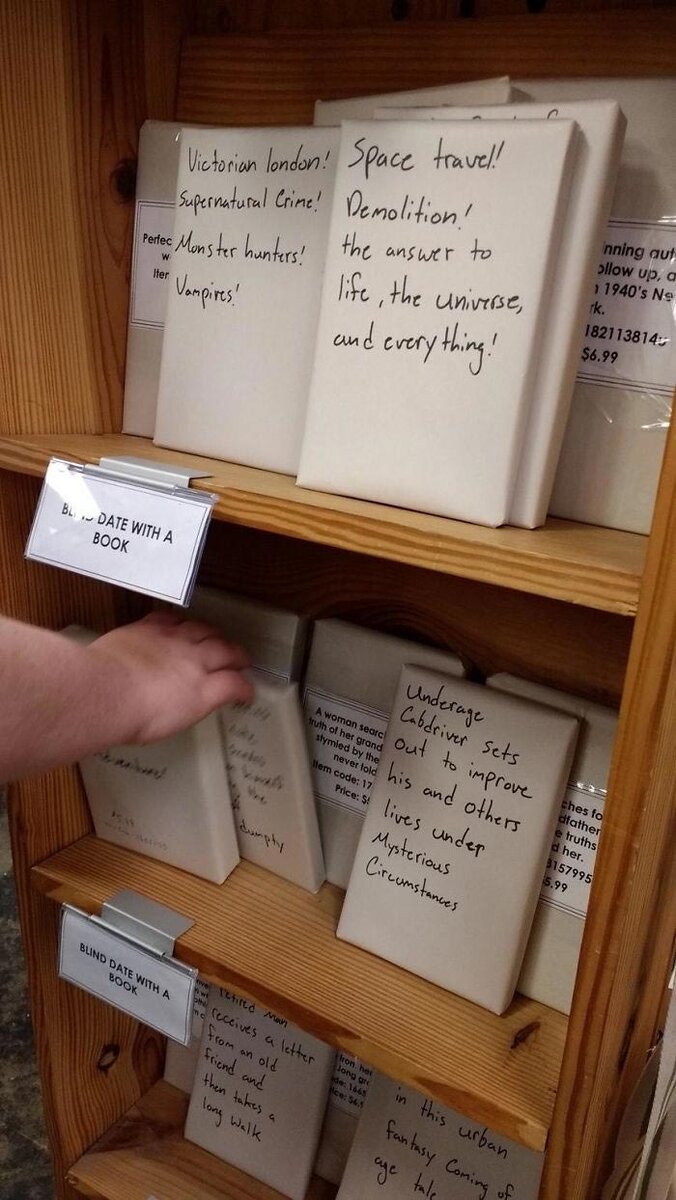 Victorian london!
Supernatural Crime!
Monster hunters!
Vampires!
Space travel!
Demolition!
the answer to
life, the universe,
and everything!
Perfec
w
Iter
nning aut
ollow up, a
1940's Ne
rk.
182113814
$6.99
BLIND DATE WITH A
BOOK
the
dumpty
A woman searc
truth of her grand
stymied by the
never told
Item code: 17
Price: $
Underage
Cabdriver sets
out to improve
his and others
lives under
Mysterious
Circumstances
ches fo
dfather
e truths
d her.
3157995
5.99
BLIND DATE WITH A
BOOK
retired man
receives a letter
from an old
friend and
then takes a
long walk
long gr
de: 166
ice: $6.
in this urban
fantasy coming of
age tale